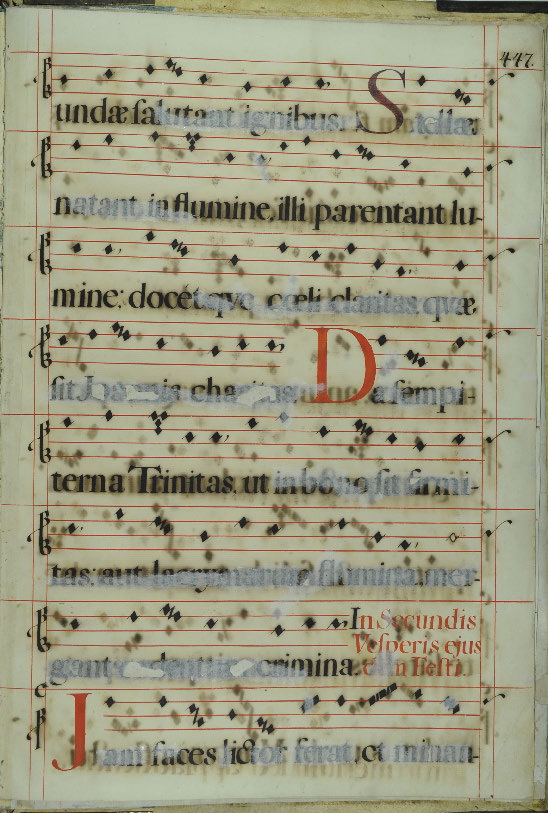 447.
undæ salutant ignibus. Stellæ
natant in flumine, illi parentant lu-
mine: docetque cœli claritas, quæ
sit Joannis charitas. Da sempi-
terna Trinitas, ut in bono sit firmi-
tas: aut lacrymarum flumina, mer-
gant crimina.
In Secundis
Vesperis ejus
Festi.
Jani faces lictor ferat, et minan-